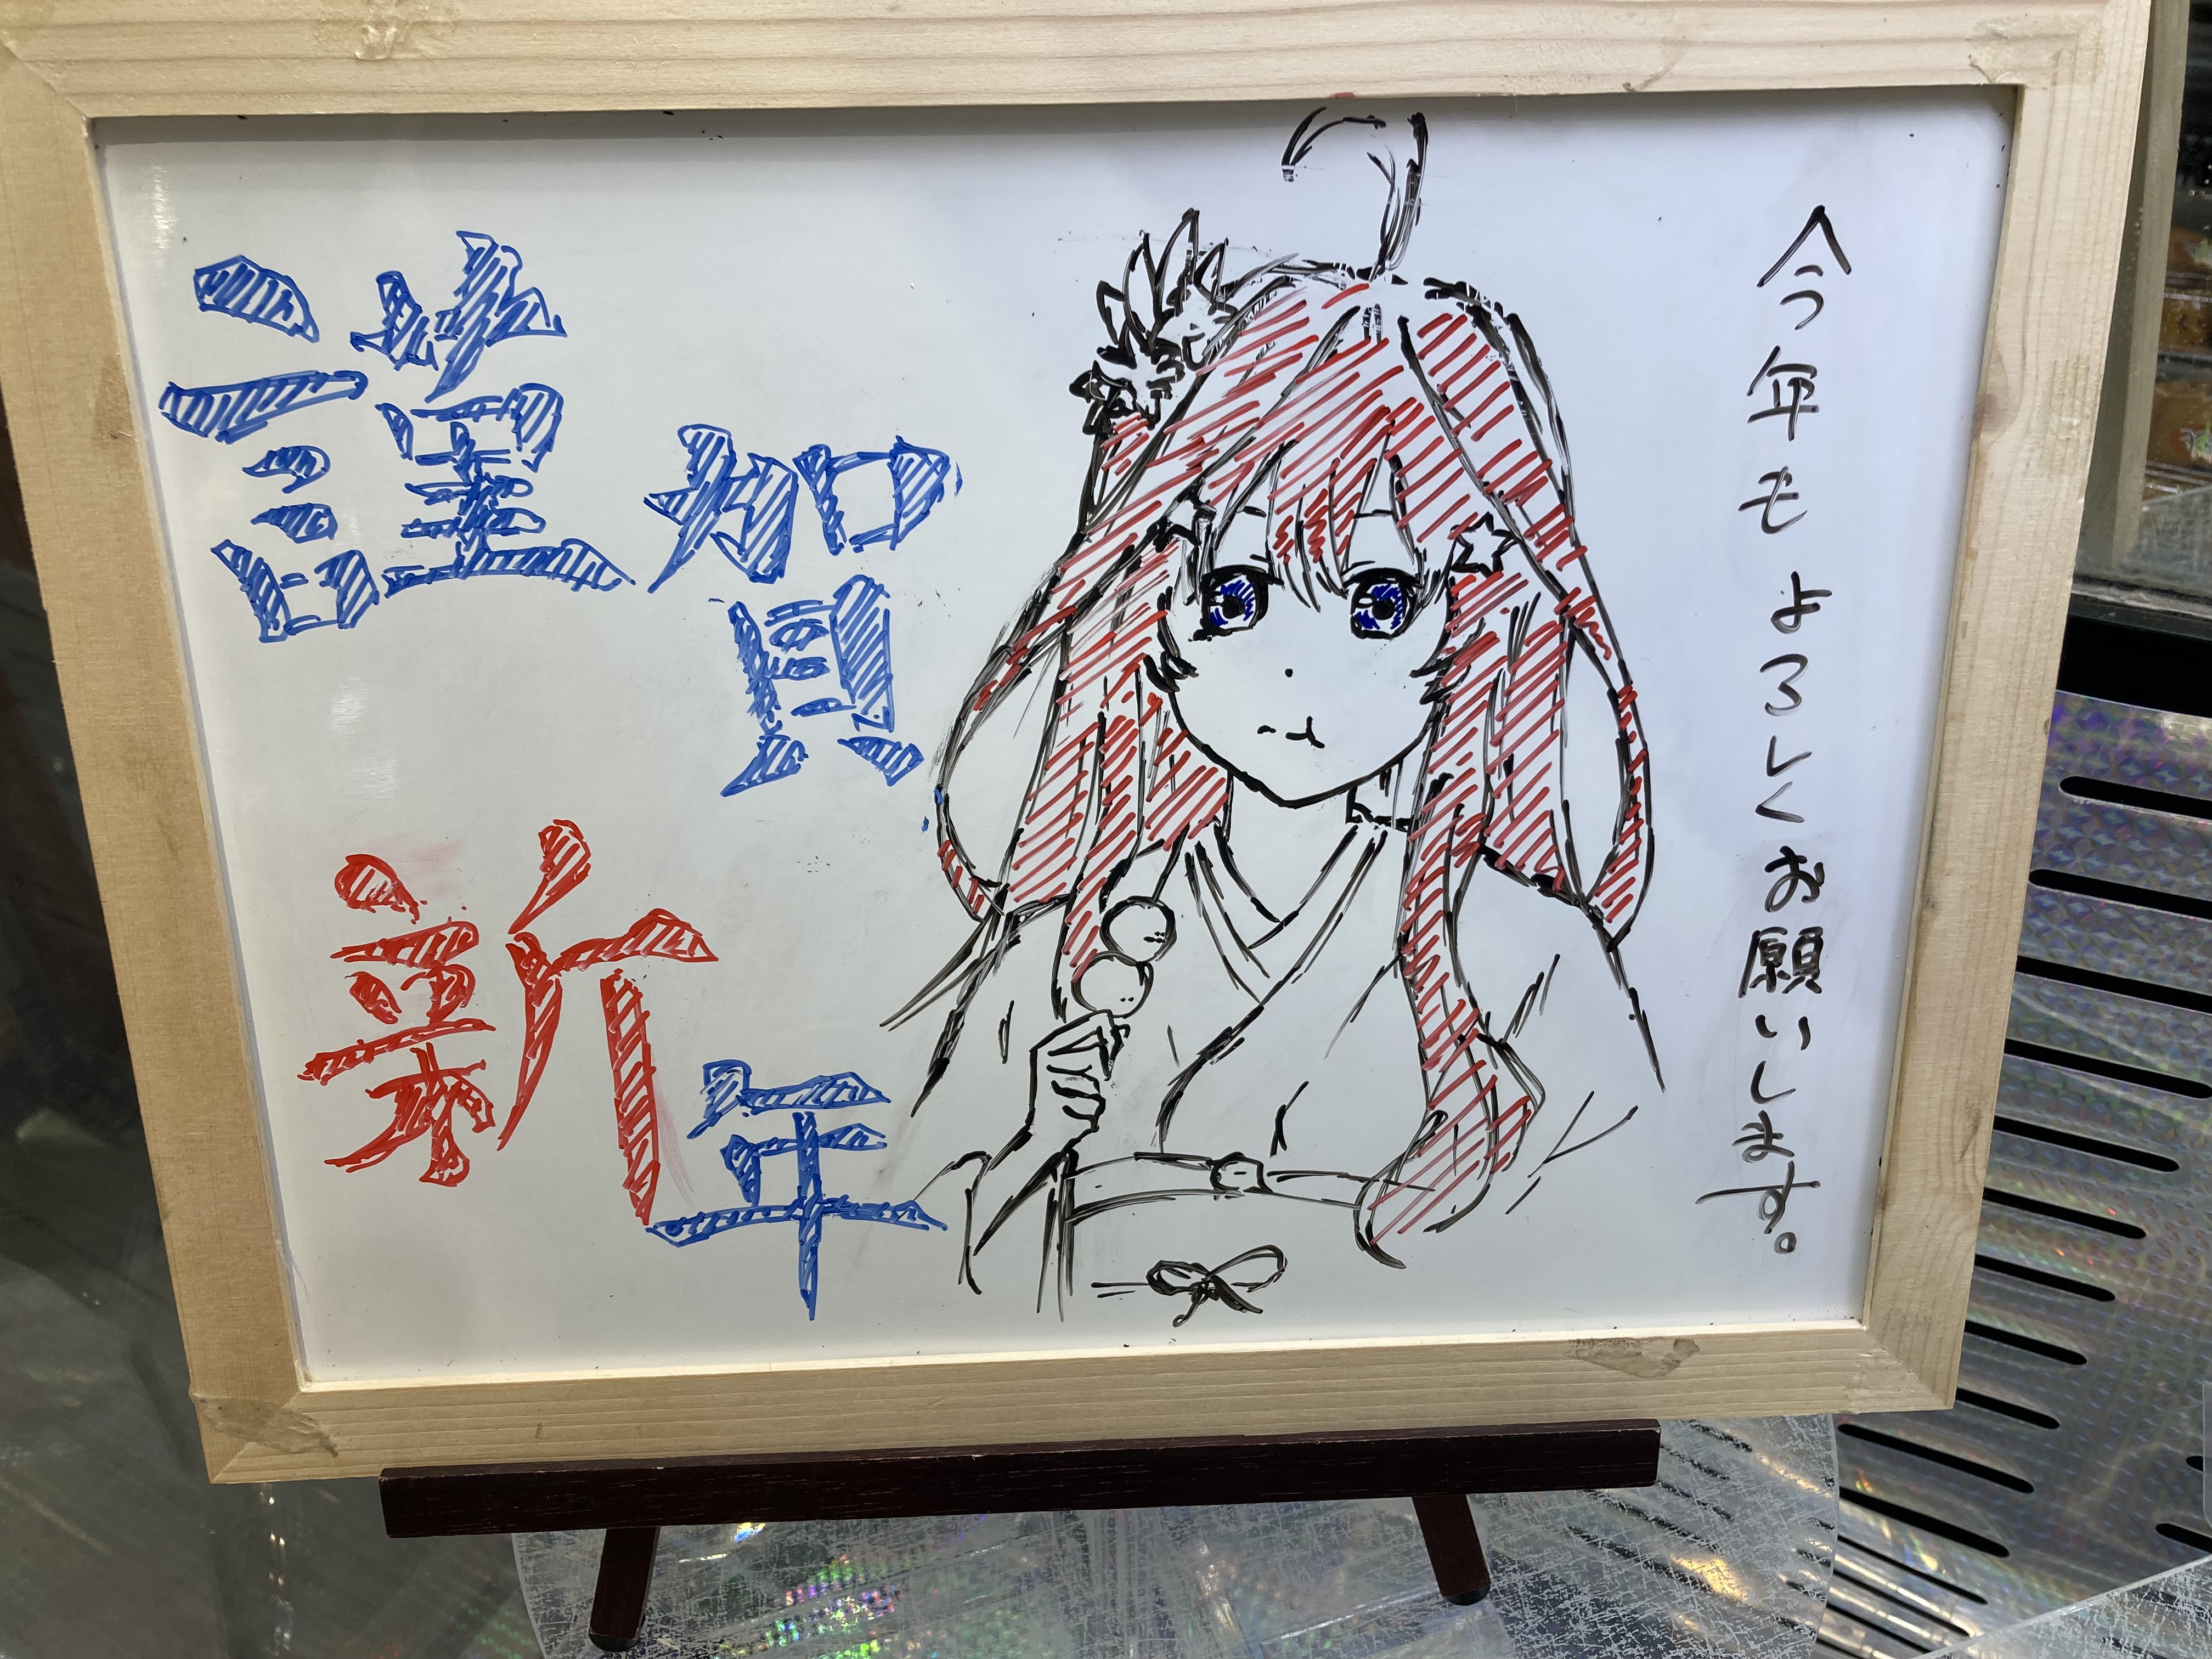 謹賀
新年
今年もよろしくお願いします。